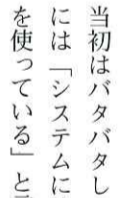 当初はバタバタし
には「システムに
を使っている」と